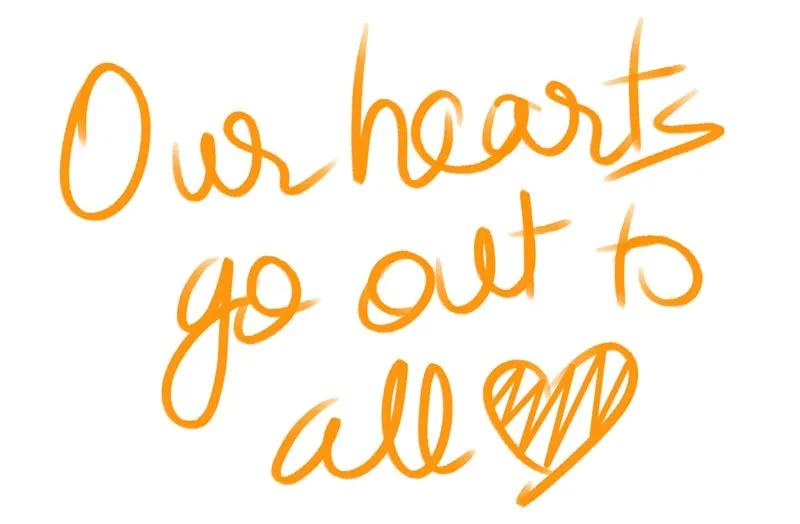 Our hearts
go out to
all